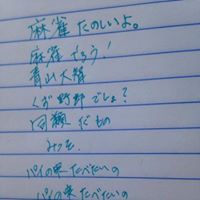 麻雀たのしいよ。
麻雀でろう!
青山大輝
くず野郎でしょ?
同類だもの
みつを
パイの実たべたいの
パイの実たべたいの